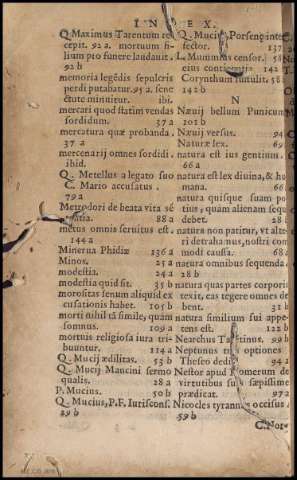 INDEX.
Q. Maximus Tarentum re
cepit. 92 a. mortuum fi-
lium pro funere laudauit.
92 b
memoria legēdis sepulcris
perdi putabatur. 95 a. sene
ctute minuitur. ibi.
mercari quod statim vendas
sordidum. 37 a
mercatura quæ probanda.
37 a
mercenarij omnes sordidi.
ibid.
Q. Metellus a legato suo
C. Mario accusatus.
79 a
Metrodori de beata vita sē
tentia. 88 a
metus omnis seruitus est.
144 a
Minerua Phidiæ 136 a
Minos. 25 a
modestia. 24 a
modestia quid sit. 35 b
morositas senum aliquid ex
cusationis habet. 105 b
morti nihil tā simile, quam
somnus. 109 a
mortuis religiosa iura tri-
buuntur. 114 a
Q. Mucij ædilitas. 53 b
Q. Mucij Mancini sermo
qualis. 28 a
P. Mucius. 50 b
Q. Mucius, P. F. Iurisconf.
89 b
Q. Mucius Porsenę inter
fector. 137
L. Mummius censor. 58
eius continentia 142
Corynthum sustulit. 58
142 b
N
Næuij bellum Punicum
101 b
Næuij versus. 94
Naturæ lex. 69
natura est ius gentium.
66 a
natura est lex diuina, & hu
mana. 66
natura quisque suam po-
tius, quam alienam sequi
debet. 28
natura non patitur, vt alte
ri detrahamus, nostri com
modi caussa. 68
natura omnibus sequenda.
28 b
natura quas partes corporis
texit, eas tegere omnes de
bent. 31 b
natura similium sui appe-
tens est. 122 b
Nearchus Tarentinus. 99 b
Neptunus tres optiones
Theseo dedit 94 a
Nestor apud Homerum de
virtutibus suis sæpissime
prædicat. 97 a
Nicocles tyrannus occisus
59 b